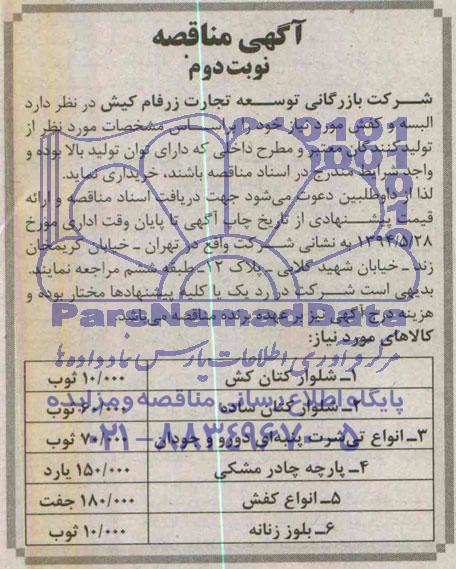 آگهی مناقصه
نوبت دوم
شرکت بازرگانی توسعه تجارت زرفام کیش در نظر دارد
البسه و کفش مورد نیاز خود را براساس مشخصات مورد نظر از
تولیدکنندگان معتبر و مطرح داخلی که دارای توان تولید بالا بوده و
واجد شرایط مندرج در اسناد مناقصه باشند، خریداری نماید.
لذا از داوطلبین دعوت می‌شود جهت دریافت اسناد مناقصه و ارائه
قیمت پیشنهادی از تاریخ چاپ آگهی تا پایان وقت اداری مورخ
۱۳۹۴/۵/۲۸ به نشانی شرکت واقع در تهران ـ خیابان کریمخان
زند ـ خیابان شهید گلابی ـ پلاک ۱۲ ـ طبقه ششم مراجعه نمایند.
بدیهی است شرکت در رد یک یا کلیه پیشنهادها مختار بوده و
هزینه درج آگهی نیز بر عهده برنده مناقصه می‌باشد.
ParsNamadData
کالاهای مورد نیاز:
مرکز فرآوری اطلاعات پارس نماد داده‌ها
۱ـ شلوار کتان کش ۱۰/۰۰۰ ثوب
پایگاه اطلاع رسانی مناقصه و مزایده
۲ـ شلوار کتان ساده ۶۰/۰۰۰ ثوب
۰۲۱-۸۸۳۴۹۶۷۰-۵
۳ـ انواع تی‌شرت پنبه‌ای دورو و جودان ۷۰/۰۰۰ ثوب
۴ـ پارچه چادر مشکی ۱۵۰/۰۰۰ یارد
۵ـ انواع کفش ۱۸۰/۰۰۰ جفت
۶ـ بلوز زنانه ۱۰/۰۰۰ ثوب